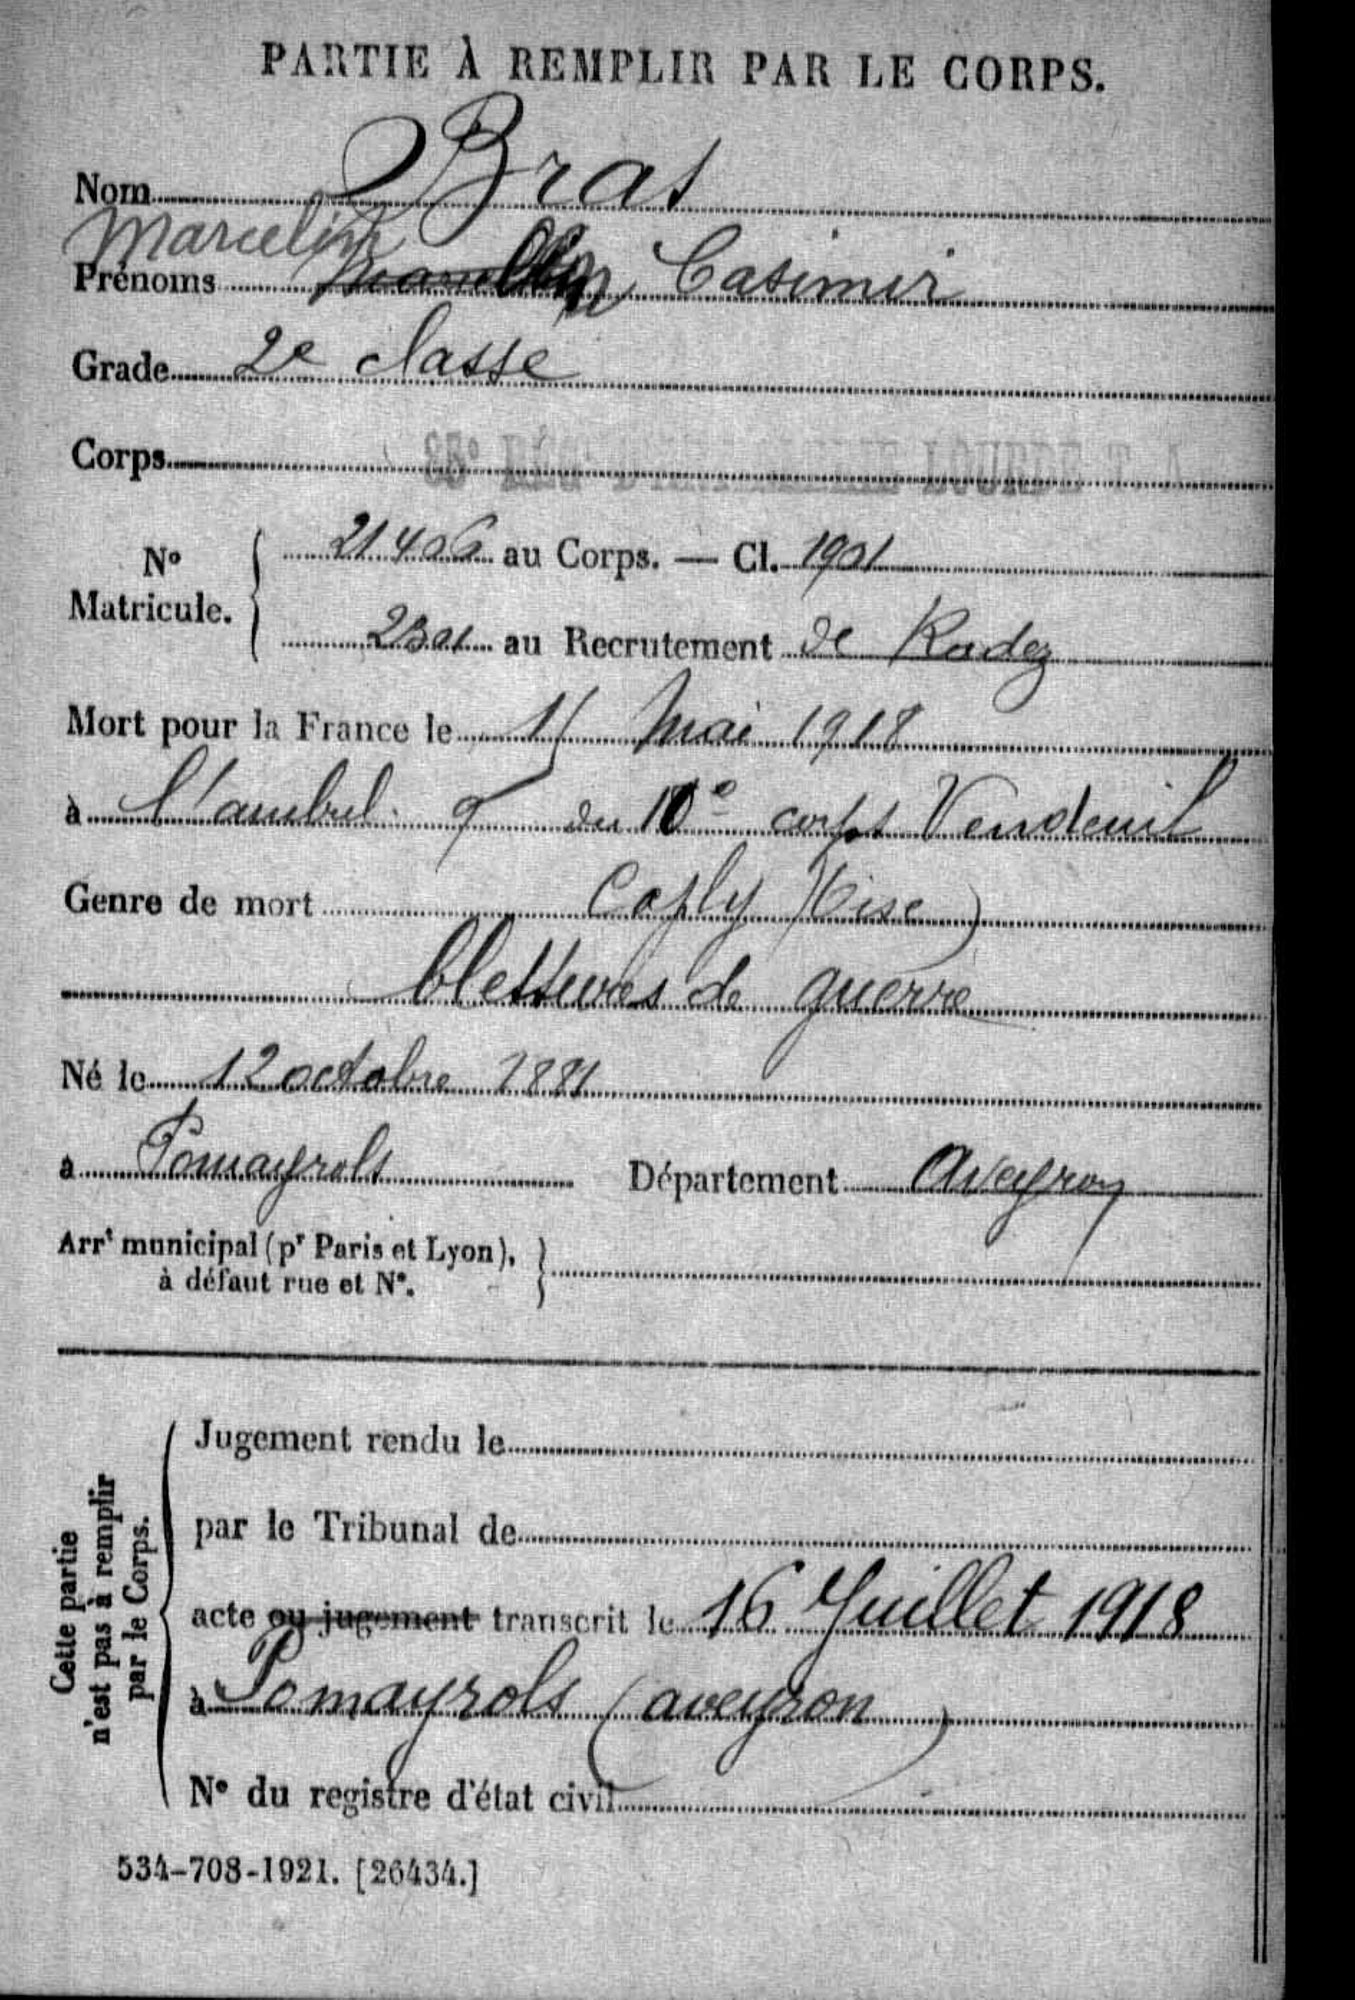 PARTIE À REMPLIR PAR LE CORPS.
Nom Bras
Marcelin
Prénoms Casimir
Grade 2e classe
Corps 85e RÉG D'ARTILLERIE LOURDE T. A
N° Matricule. 21406 au Corps. — Cl. 1901
2301 au Recrutement de Rodez
Mort pour la France le 11 Mai 1918
à l'ambul. du 10e corps Vendeuil
Genre de mort Caply (Oise)
blessures de guerre
Né le 12 octobre 1881
à Pomayrols Département Aveyron
Arrt municipal (pr Paris et Lyon),
à défaut rue et N°.
Cette partie n'est pas à remplir par le Corps.
Jugement rendu le
par le Tribunal de
acte ou jugement transcrit le 16 Juillet 1918
à Pomayrols (aveyron)
N° du registre d'état civil
534-708-1921. [26434.]